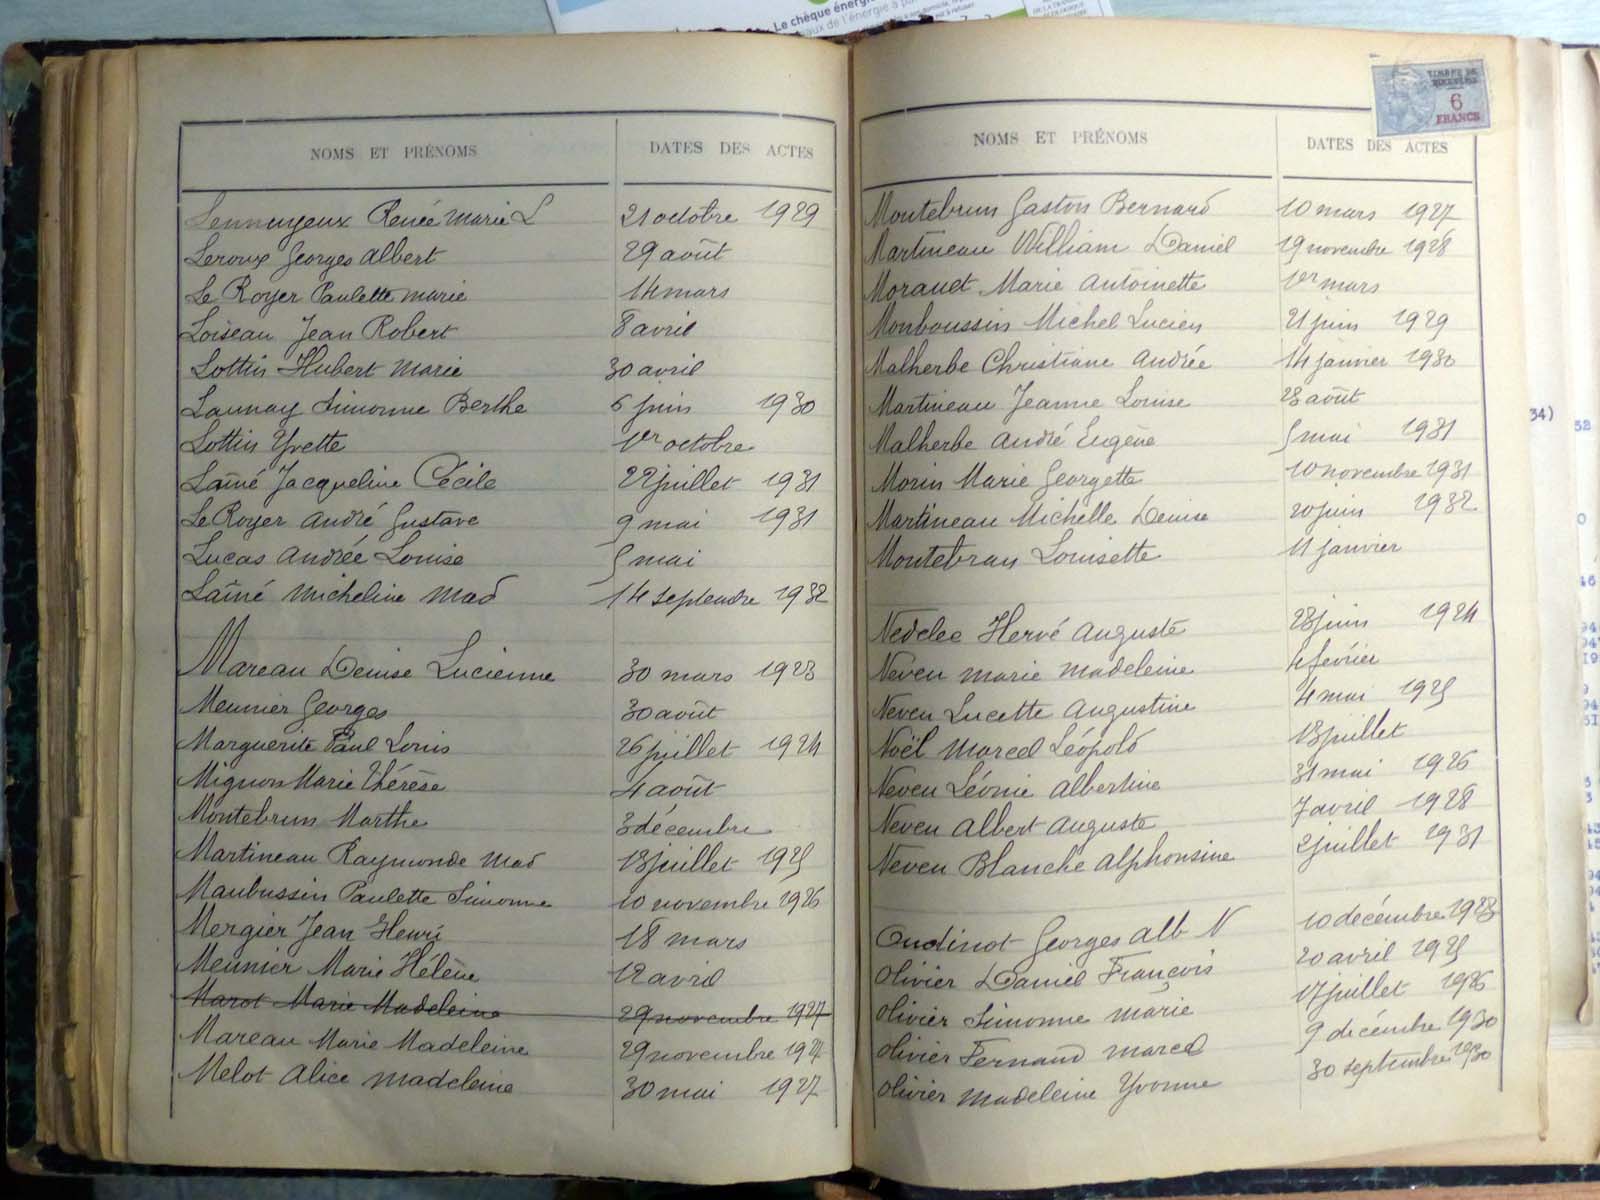 Le chèque énergie
NOMS ET PRÉNOMS DATES DES ACTES
Lennuyeux Renée Marie L 21 octobre 1929
Leroux Georges Albert 29 août
Le Royer Paulette Marie 14 mars
Loiseau Jean Robert 8 avril
Lottin Hubert Marie 30 avril
Launay Simonne Berthe 6 juin 1930
Lottin Yvette 1er octobre
Laîné Jacqueline Cécile 22 juillet 1931
Le Royer André Gustave 9 mai 1931
Lucas Andrée Louise 5 mai
Laîné Micheline Mad 14 septembre 1932
Mareau Denise Lucienne 30 mars 1923
Meunier Georges 30 août
Marguerite Paul Louis 26 juillet 1924
Mignon Marie Thérèse 4 août
Montebrun Marthe 3 décembre
Martineau Raymonde Mad 18 juillet 1925
Maubussin Paulette Simonne 10 novembre 1926
Mergier Jean Henri 18 mars
Meunier Marie Hélène 12 avril
Marot Marie Madeleine 29 novembre 1927
Mareau Marie Madeleine 29 novembre 1927
Melot Alice Madeleine 30 mai 1927
TIMBRE DE
DIMENSION
6
FRANCS
NOMS ET PRÉNOMS DATES DES ACTES
Montebrun Gaston Bernard 10 mars 1927
Martineau William Daniel 19 novembre 1928
Moraud Marie Antoinette 1er mars
Monboussin Michel Lucien 21 juin 1929
Malherbe Christiane Andrée 14 janvier 1930
Martineau Jeanne Louise 28 août
Malherbe André Eugène 5 mai 1931
Morin Marie Georgette 10 novembre 1931
Martineau Michelle Denise 20 juin 1932
Montebran Louisette 11 janvier
Nedelec Hervé Auguste 28 juin 1924
Neveu Marie Madeleine 4 février
Neveu Lucette Augustine 4 mai 1925
Noël Marcel Léopold 18 juillet
Neveu Léonie Albertine 31 mai 1926
Neveu Albert Auguste 7 avril 1928
Neveu Blanche Alphonsine 2 juillet 1931
Oudinot Georges Alb N 10 décembre 1923
Olivier Daniel François 20 avril 1925
Olivier Simonne Marie 17 juillet 1926
Olivier Fernand Marcel 9 décembre 1930
Olivier Madeleine Yvonne 30 septembre 1930